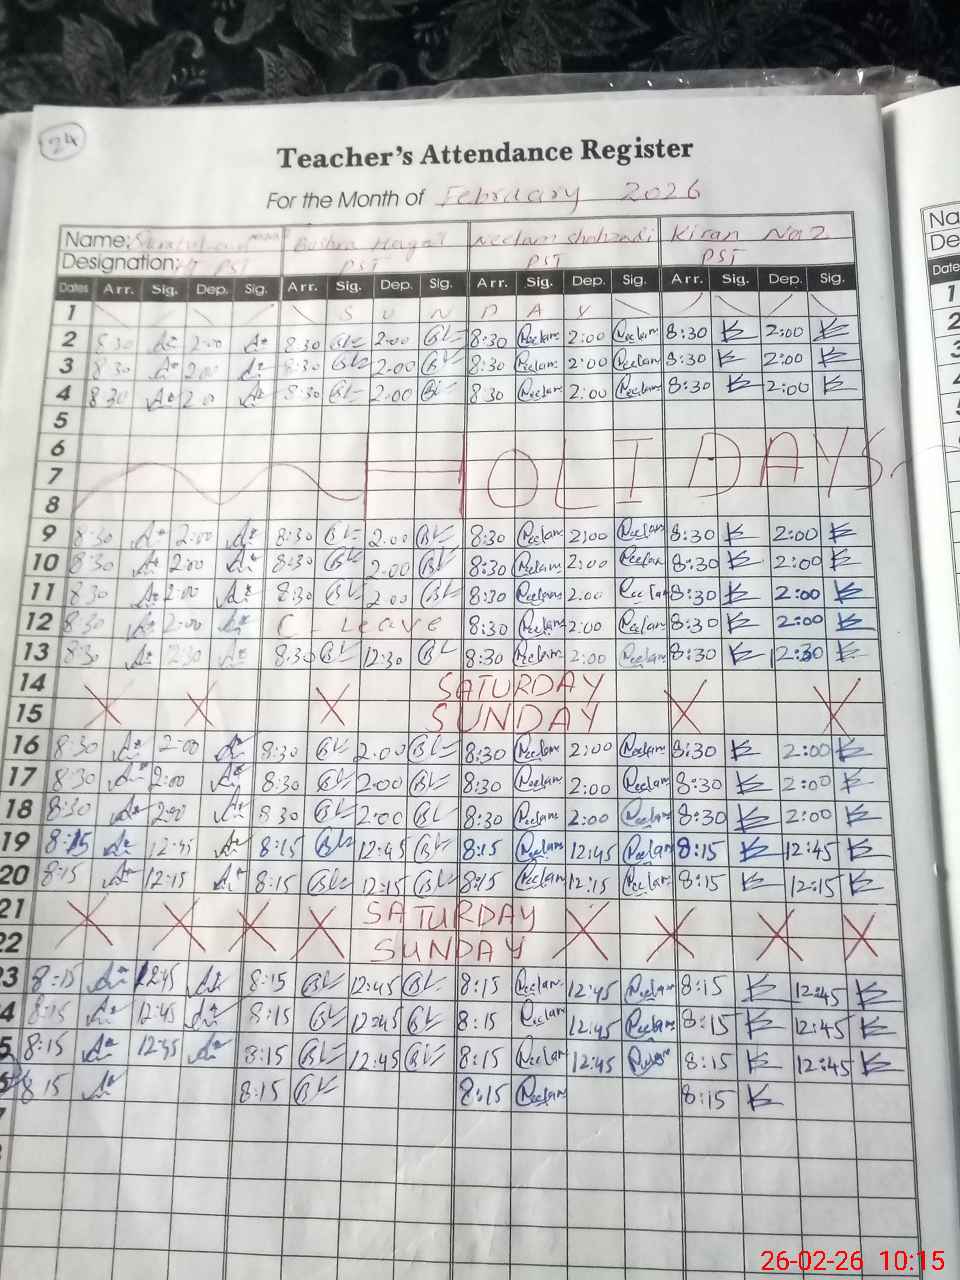 24
Teacher's Attendance Register
For the Month of February 2026
Name: Bushra Neelam Shahzadi Kiran Naz
Designation: PST PST PST PST
Dates Arr. Sig. Dep. Sig. Arr. Sig. Dep. Sig. Arr. Sig. Dep. Sig. Arr. Sig. Dep. Sig.
1 S U N D A Y
2 8:30 2:00 8:30 2:00 8:30 Neelam 2:00 Neelam 8:30 2:00
3 8:30 2:00 8:30 2:00 8:30 Neelam 2:00 Neelam 8:30 2:00
4 8:30 2:00 8:30 2:00 8:30 Neelam 2:00 Neelam 8:30 2:00
5
6
7 HOLIDAYS
8
9 8:30 2:00 8:30 2:00 8:30 Neelam 2:00 Neelam 8:30 2:00
10 8:30 2:00 8:30 2:00 8:30 Neelam 2:00 Neelam 8:30 2:00
11 8:30 2:00 8:30 2:00 8:30 Neelam 2:00 Neelam 8:30 2:00
12 8:30 2:00 C Leave 8:30 Neelam 2:00 Neelam 8:30 2:00
13 8:30 2:30 8:30 12:30 8:30 Neelam 2:00 Neelam 8:30 12:30
14 SATURDAY
15 SUNDAY
16 8:30 2:00 8:30 2:00 8:30 Neelam 2:00 Neelam 8:30 2:00
17 8:30 2:00 8:30 2:00 8:30 Neelam 2:00 Neelam 8:30 2:00
18 8:30 2:00 8:30 2:00 8:30 Neelam 2:00 Neelam 8:30 2:00
19 8:15 12:45 8:15 12:45 8:15 Neelam 12:45 Neelam 8:15 12:45
20 8:15 12:15 8:15 12:15 8:15 Neelam 12:15 Neelam 8:15 12:15
21 SATURDAY
22 SUNDAY
3 8:15 12:45 8:15 12:45 8:15 Neelam 12:45 Neelam 8:15 12:45
4 8:15 12:45 8:15 12:45 8:15 Neelam 12:45 Neelam 8:15 12:45
5 8:15 12:45 8:15 12:45 8:15 Neelam 12:45 8:15 12:45
8:15 8:15 8:15 Neelam 8:15
Na
De
Date
1
2
26-02-26 10:15